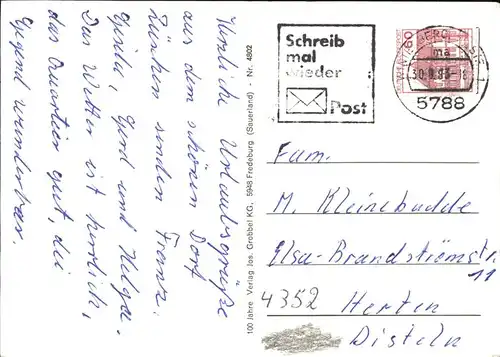 Herzliche Urlaubsgrüße
aus dem schönen Dorf
Züschen senden Franz,
Gisela, Gerd und Helga.
Das Wetter ist herrlich,
das Quartier gut, die
Gegend wunderbar.
100 Jahre Verlag Jos. Grobbel KG, 5948 Fredeburg (Sauerland) - Nr. 4802
Schreib
mal
wieder
Post
60
ma
30.9.83-18
5788
Fam.
M. Kleinebudde
Elsa-Brandströmstr
11
4352 Herten
Disteln